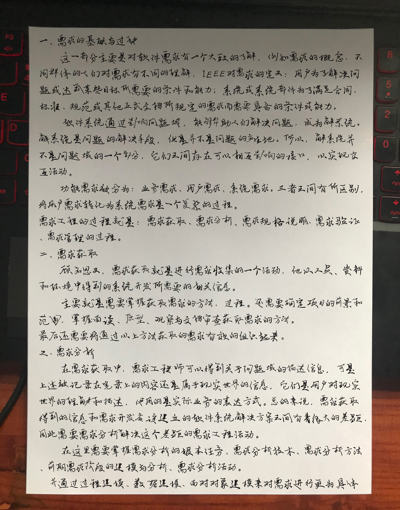 一、需求的基础与过程
这一部分主要是对软件需求有一个大致的了解，例如需求的概念，不
同群体的人们对需求有不同的理解，IEEE对需求的定义：用户为了解决问
题或达到某些目标所需要的条件和能力；系统或系统部件为了满足合同、
标准、规范或其他正式文档所规定的需求而需要具备的条件或能力。
软件系统通过影响问题域，能够帮助人们解决问题，成为解系统。
解系统是问题的解决手段，但并不是问题的所在地。所以，解系统并
不是问题域的一个部分，它们之间存在可以相互影响的接口，以实现交
互活动。
功能需求被分为：业务需求、用户需求、系统需求。三者之间有所区别，
将用户需求转化为系统需求是一个复杂的过程。
需求工程的过程就是：需求获取、需求分析、需求规格说明、需求验证
、需求管理的过程。
二、需求获取
顾名思义，需求获取就是进行需求收集的一个活动，他从人员、资料
和环境中得到的系统开发所需要的相关信息。
主要就是需要掌握获取需求的方法、过程。还需要确定项目的前景和
范围，掌握面谈、原型、观察与文档审查获取需求的方法。
最后还需要将通过以上方法获取的需求有效的组织起来。
三、需求分析
在需求获取中，需求工程师可以得到关于问题域的描述信息，可是
上述被记录在笔录上的内容还是属于现实世界的信息，它们是用户对现实
世界的理解和描述，使用的是实际业务的表达方式。总的来说，需求获取
得到的信息和需求开发者该建立的软件系统解决方案之间有着很大的差距，
因此需要需求分析解决这个差距的需求工程活动。
在这里需要掌握需求分析的根本任务、需求分析方法、需求分析方法
、前期需求阶段的建模与分析、需求分析活动。
并通过过程建模、数据建模、面对对象建模来对需求进行更为具体